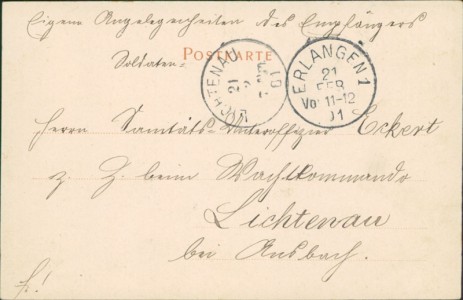 Eigene Angelegenheiten des Empfängers
POSTKARTE
Soldaten-
LICHTENAU
21
ERLANGEN 1
21
FEB
Vor 11-12
01
Herrn Sanitäts-Unteroffizier Eckert
z. Z. beim Wachtkommando
Lichtenau
bei Ansbach.